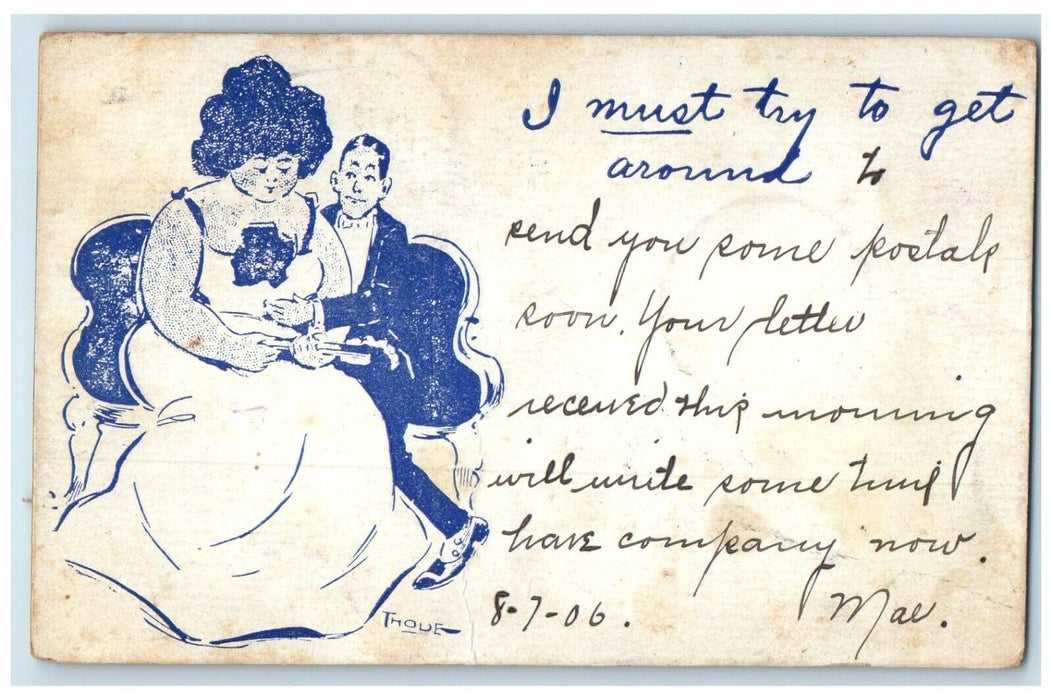 I must try to get
around to
send you some postals
soon. Your letter
received this morning
will write some time
have company now.
8-7-06. Mae.
THODE